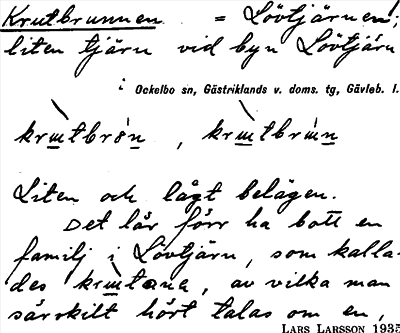 Krutbrunnen = Lövtjärnen!;
liten tjärn vid byn Lövtjärn
i Ockelbo sn, Gästriklands v. doms. tg, Gävleb. l.
krɯtbrön , krɯtbrɯn
Liten och lågt belägen.
Det lär förr ha bott en
familj i Lövtjärn, som kalla-
des krɯtana, av vilka man
särskilt hört talas om en,
LARS LARSSON 1935